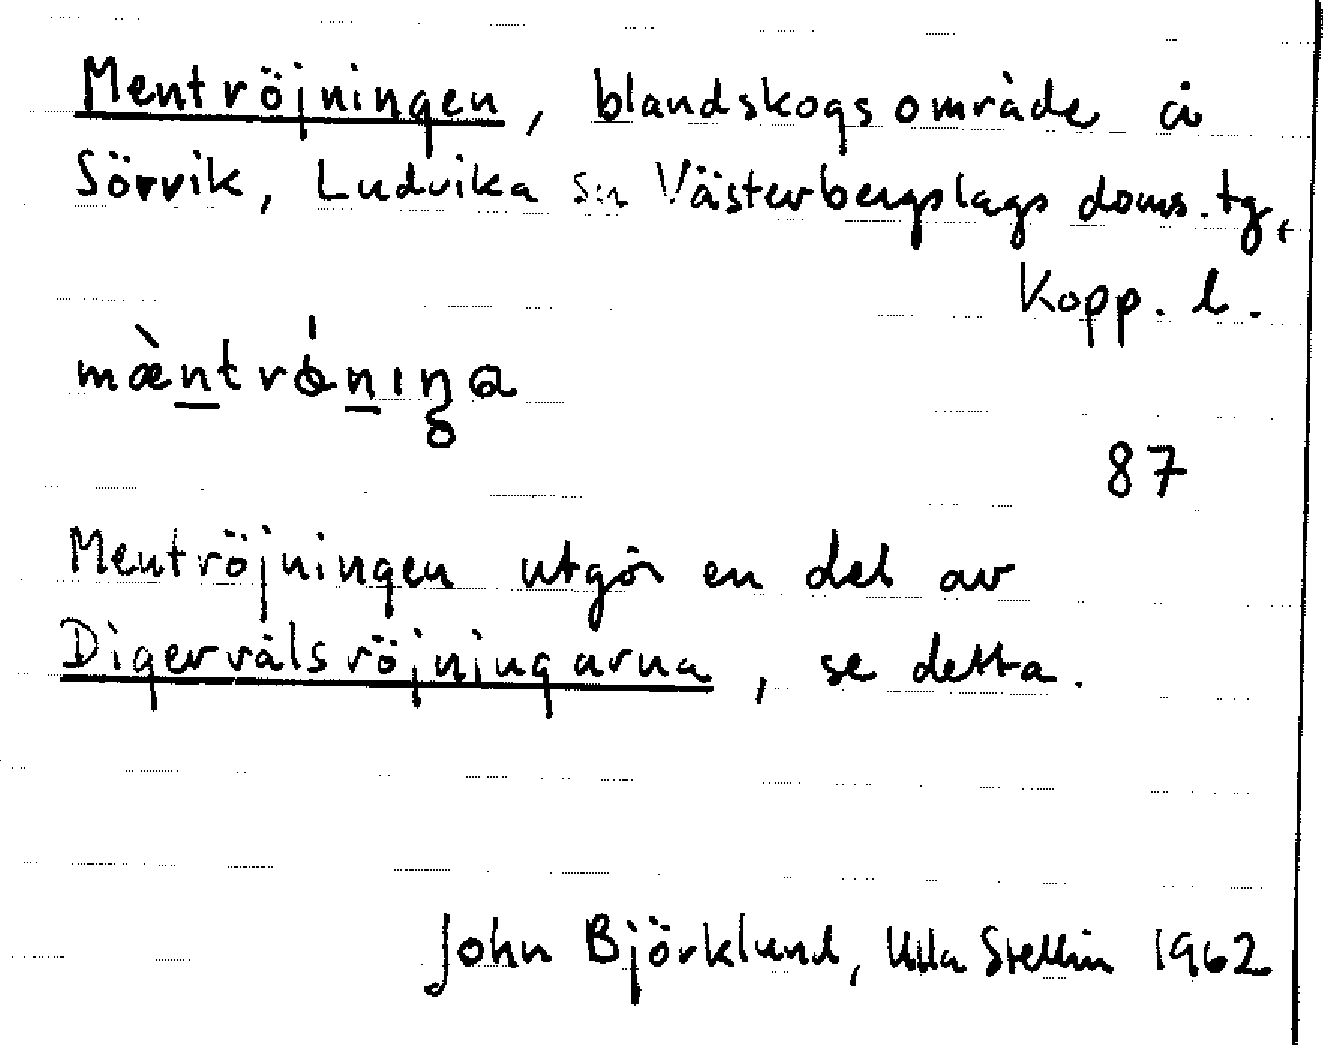 Mentröjningen, blandskogsområde å
Sörvik, Ludvika sn Västerbergslags doms.tg,
Kopp. l.
mæ̀ntrǿniŋa
87
Mentröjningen utgör en del av
Digervålsröjningarna, se detta.
John Björklund, Ulla Stellin 1962